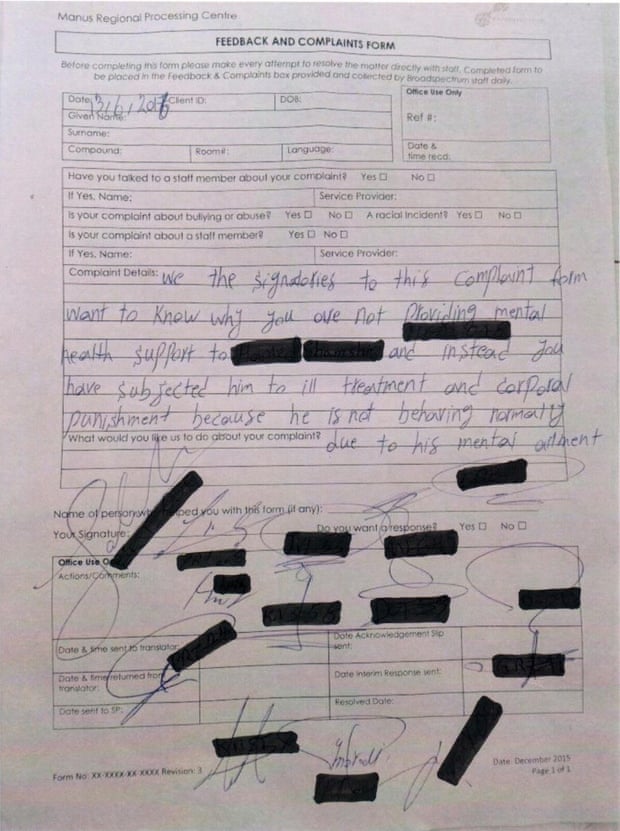 Manus Regional Processing Centre
FEEDBACK AND COMPLAINTS FORM
Before completing this form please make every attempt to resolve the matter directly with staff. Completed form to
be placed in the Feedback & Complaints box provided and collected by Broadspectrum staff daily.
Date: 13/6/2016 Client ID: DOB: Office Use Only
Given Name: Ref #:
Surname:
Compound: Room#: Language: Date &
time recd:
Have you talked to a staff member about your complaint? Yes ☐ No ☐
If Yes, Name: Service Provider:
Is your complaint about bullying or abuse? Yes ☐ No ☐ A racial incident? Yes ☐ No ☐
Is your complaint about a staff member? Yes ☐ No ☐
If Yes, Name: Service Provider:
Complaint Details: We the signatories to this complaint form
want to know why you are not providing mental
health support to and instead you
have subjected him to ill treatment and corporal
punishment because he is not behaving normally
What would you like us to do about your complaint? due to his mental ailment
Name of person who helped you with this form (if any):
Your Signature: Do you want a response? Yes ☐ No ☐
Office Use
Actions/Comments:
Date & time sent to translator: Date Acknowledgement Slip
sent:
Date & time returned from
translator: Date Interim Response sent:
Date sent to SP: Resolved Date:
Form No: XX-XXXX-XX-XXXX Revision: 3 Date: December 2015
Page 1 of 1